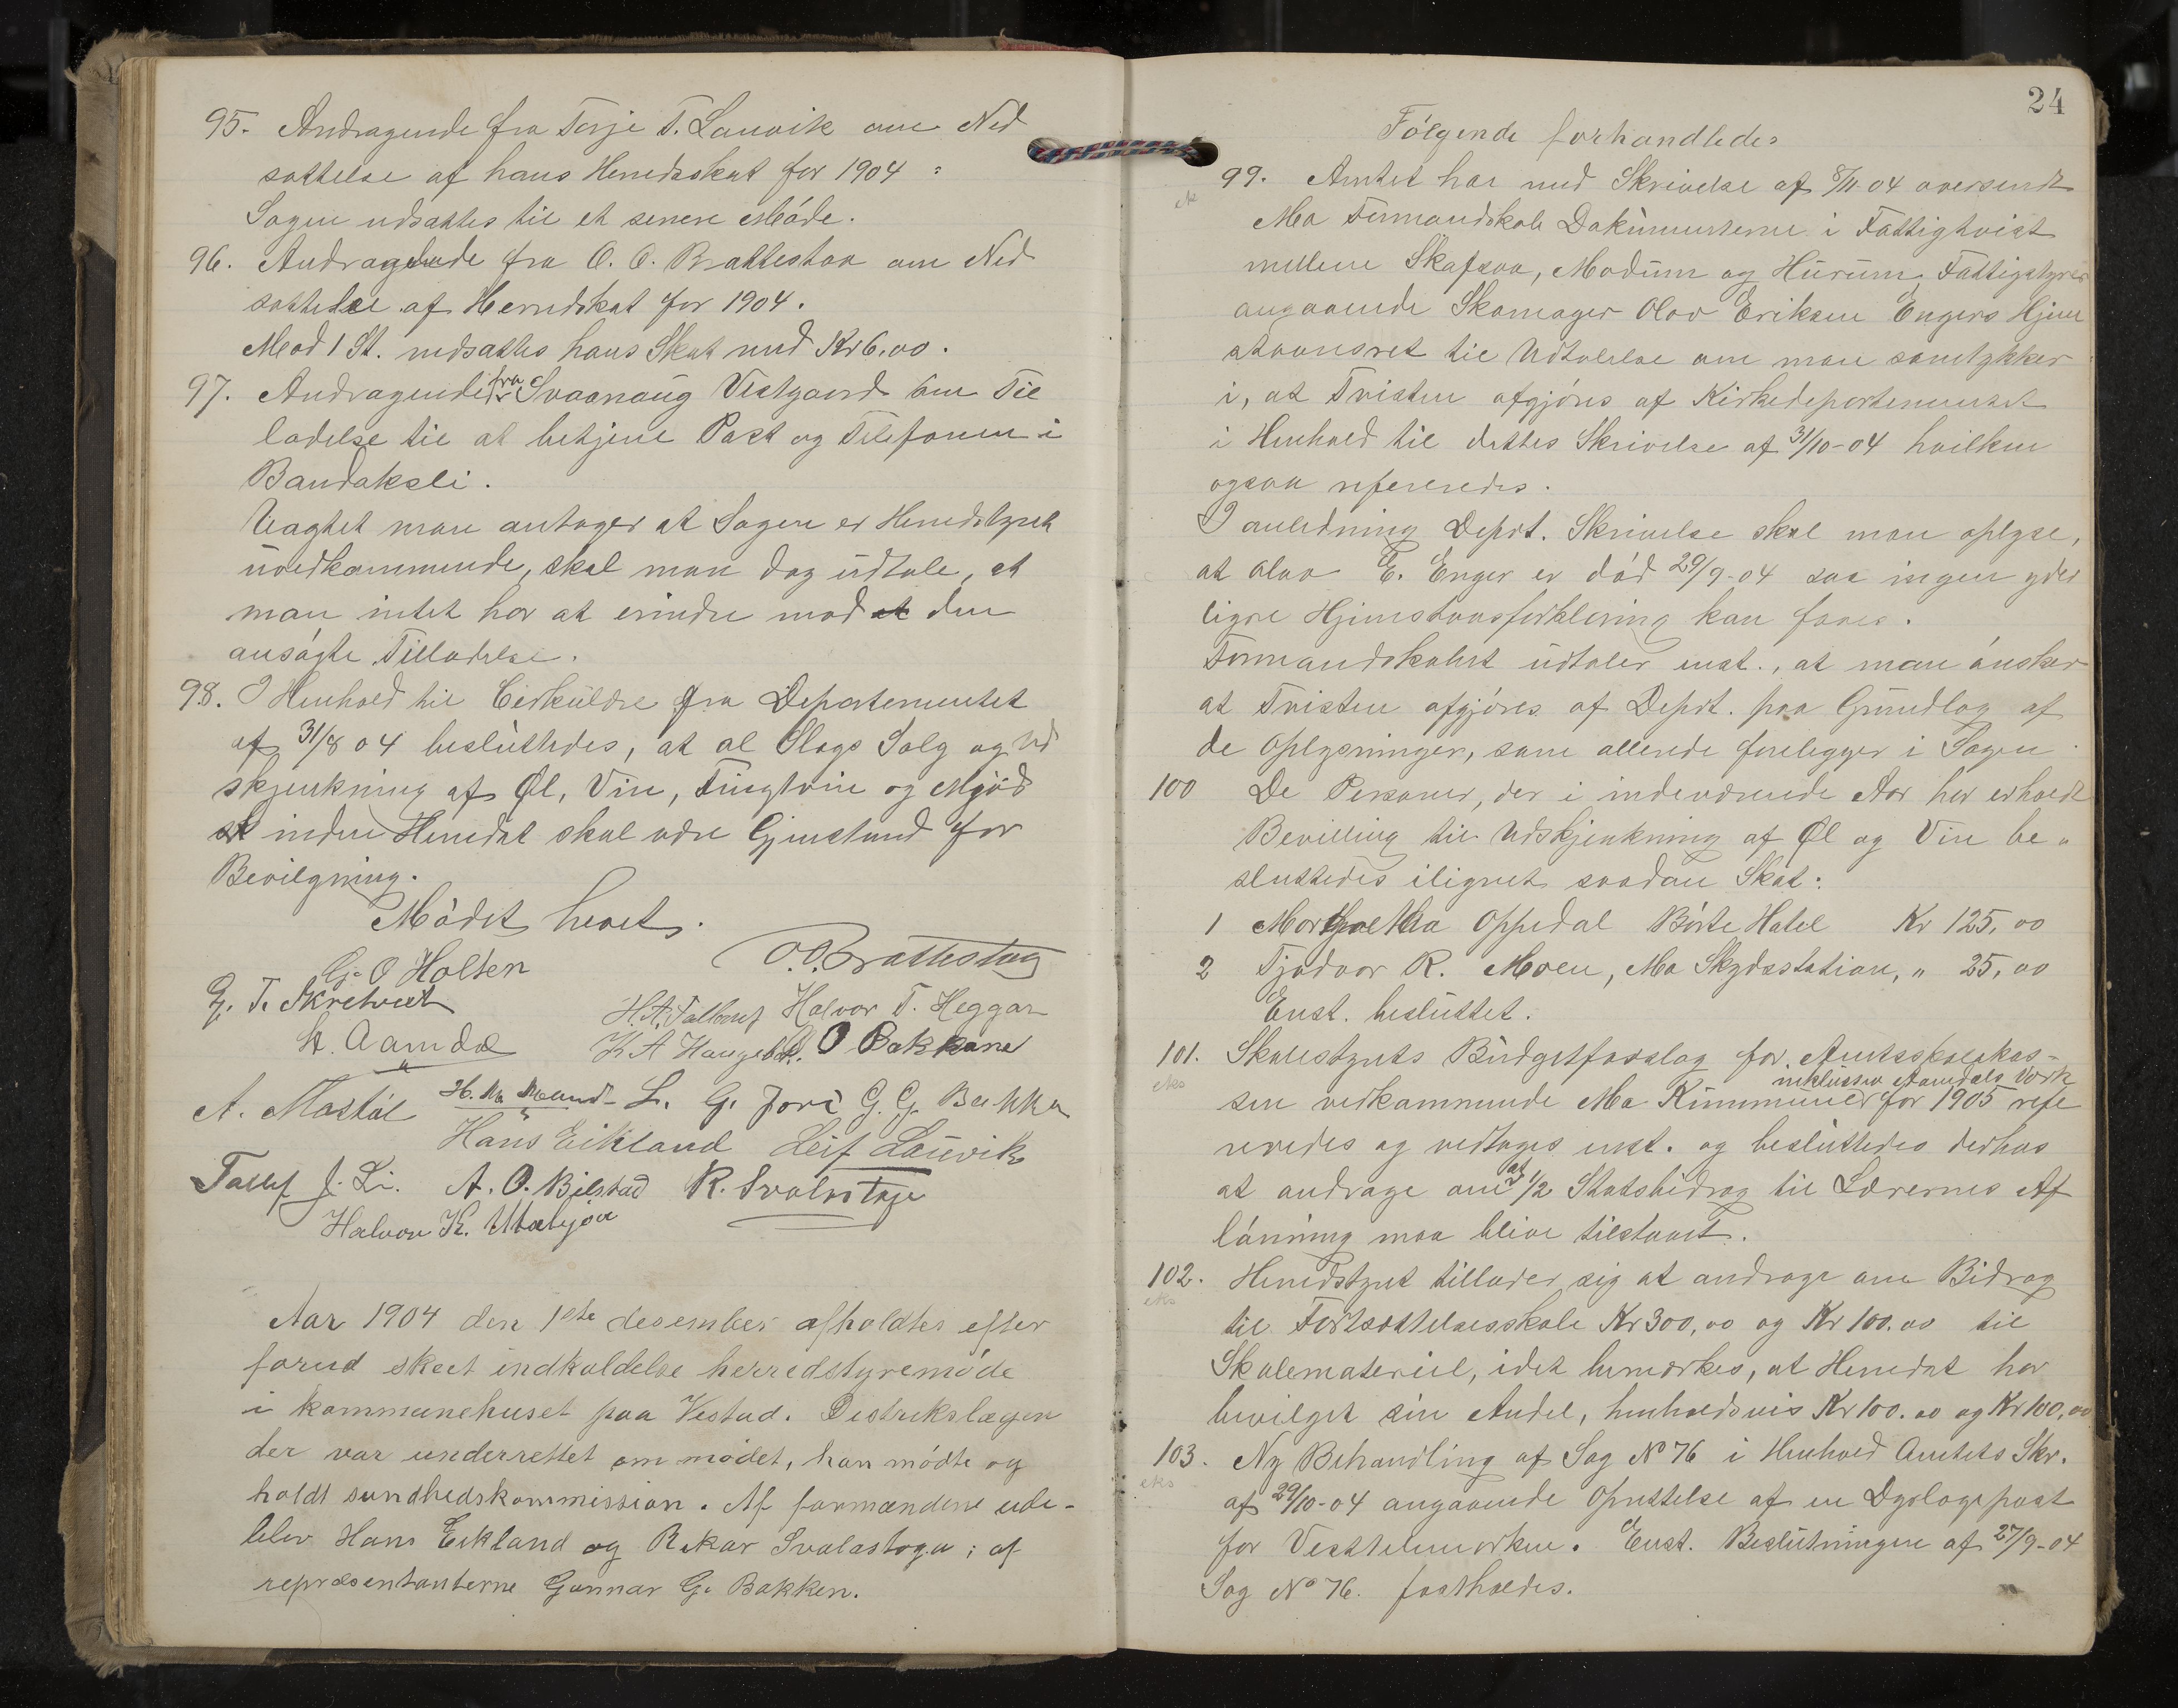 95. Andragende fra Torje T. Lauvik om Ned
sættelse af hans Herredsskat for 1904 :
Sagen udsattes til et senere Møde.
96. Andragende fra O. O. Brattestaa om Ned
sættelse af Herredskat for 1904.
Mod 1 St. nedsattes hans Skat med Kr 6,00.
97. Andragende fra Svaanaug Vestgaard om Til
ladelse til at betjene Post og Telefonen i
Bandaksli.
Uagtet man antager at Sagen er Herredstyret
uvedkommende, skal man dog udtale, at
man intet har at erindre mod at den
ansøgte Tilladelse.
98. I Henhold til Cirkulære fra Departementet
af 31/8 04 besluttedes, at al Slags Salg og Ud
skjenkning af Øl, Vin, Frugtvin og Mjød
inden Herredet skal være Gjenstand for
Bevilgning.
Mødet hevet.
G. O Holten O. O. Brattestaa
G. T. Skretveit H. A. Tallaus Halvor T. Heggar
A. Aamdal K A Haugest. O Bakkane
A. Mostøl H. Mo L. G. Jore G. G. Bakka
Hans Eikland Leif Lauvik
Tallef J. Li. A. O. Bilstad R. Svalastoga
Halvor K. Utabjaa
Aar 1904 den 1ste desember afholdtes efter
forud skeet indkaldelse herredstyremøde
i kommunehuset paa Vestad. Distrikslægen
der var underrettet om mødet, han mødte og
holdt sundhedskommission. Af formændene ude-
blev Hans Eikland og Rikar Svalastoga; af
repræsentanterne Gunnar G. Bakken.
24
Følgende forhandledes
99. Amtet har med Skrivelse af 8/11 04 oversendt
ek
Mo Formandskab Dokumenterne i Fattigtvist
mellem Skafsaa, Modum og Hurum Fattigstyrer
angaaende Skomager Olav Eriksen Engers Hjem
stavnsret til Udtalelse om man samtykker
i, at Tvisten afgjøres af Kirkedepartementet
i Henhold til dettes Skrivelse af 31/10-04 hvilken
ogsaa refereredes.
I anledning Depart. Skrivelse skal man oplyse,
at Olav E. Enger er død 29/9-04 saa ingen yder
ligere Hjemstavnsforklaring kan faaes.
Formandskabet udtaler enst., at man ønsker
at Tvisten afgjøres af Deprt. paa Grundlag af
de Oplysninger, som allerede foreligger i Sagen.
100 De Personer, der i indeværende Aar har erholdt
Bevilling til Udskjenkning af Øl og Vin be-
sluttedes ilignet saadan Skat:
1 Margretha Oppedal Børte Hotel Kr 125,00
2 Tjodvor R. Moen, Mo Skydsstation, " 25,00
Enst. besluttet.
101. Skolestyrets Budgetforslag for Amtsskolekas-
eks
inklusive Aamdals Verk
sen vedkommende Mo Kommuner for 1905 refe
reredes og vedtoges enst. og besluttedes derhos
at andrage om at 1/2 Statsbidrag til Lærernes Af
lønning maa blive tilstaaet.
102. Herredstyret tillader sig at andrage om Bidrag
eks
til Fortsættelsesskole Kr 300,00 og Kr 100.00 til
Skolemateriel, idet bemærkes, at Herredet har
bevilget sin Andel, henholdsvis Kr 100.00 og Kr 100,00
103. Ny Behandling af Sag No 76 i Henhold Amtets Skr.
eks
af 29/10-04 angaaende Oprettelse af en Dyrlægepost
for Vesttelemarken. Enst. Beslutningen af 27/9-04
Sag No 76. fastholdes.